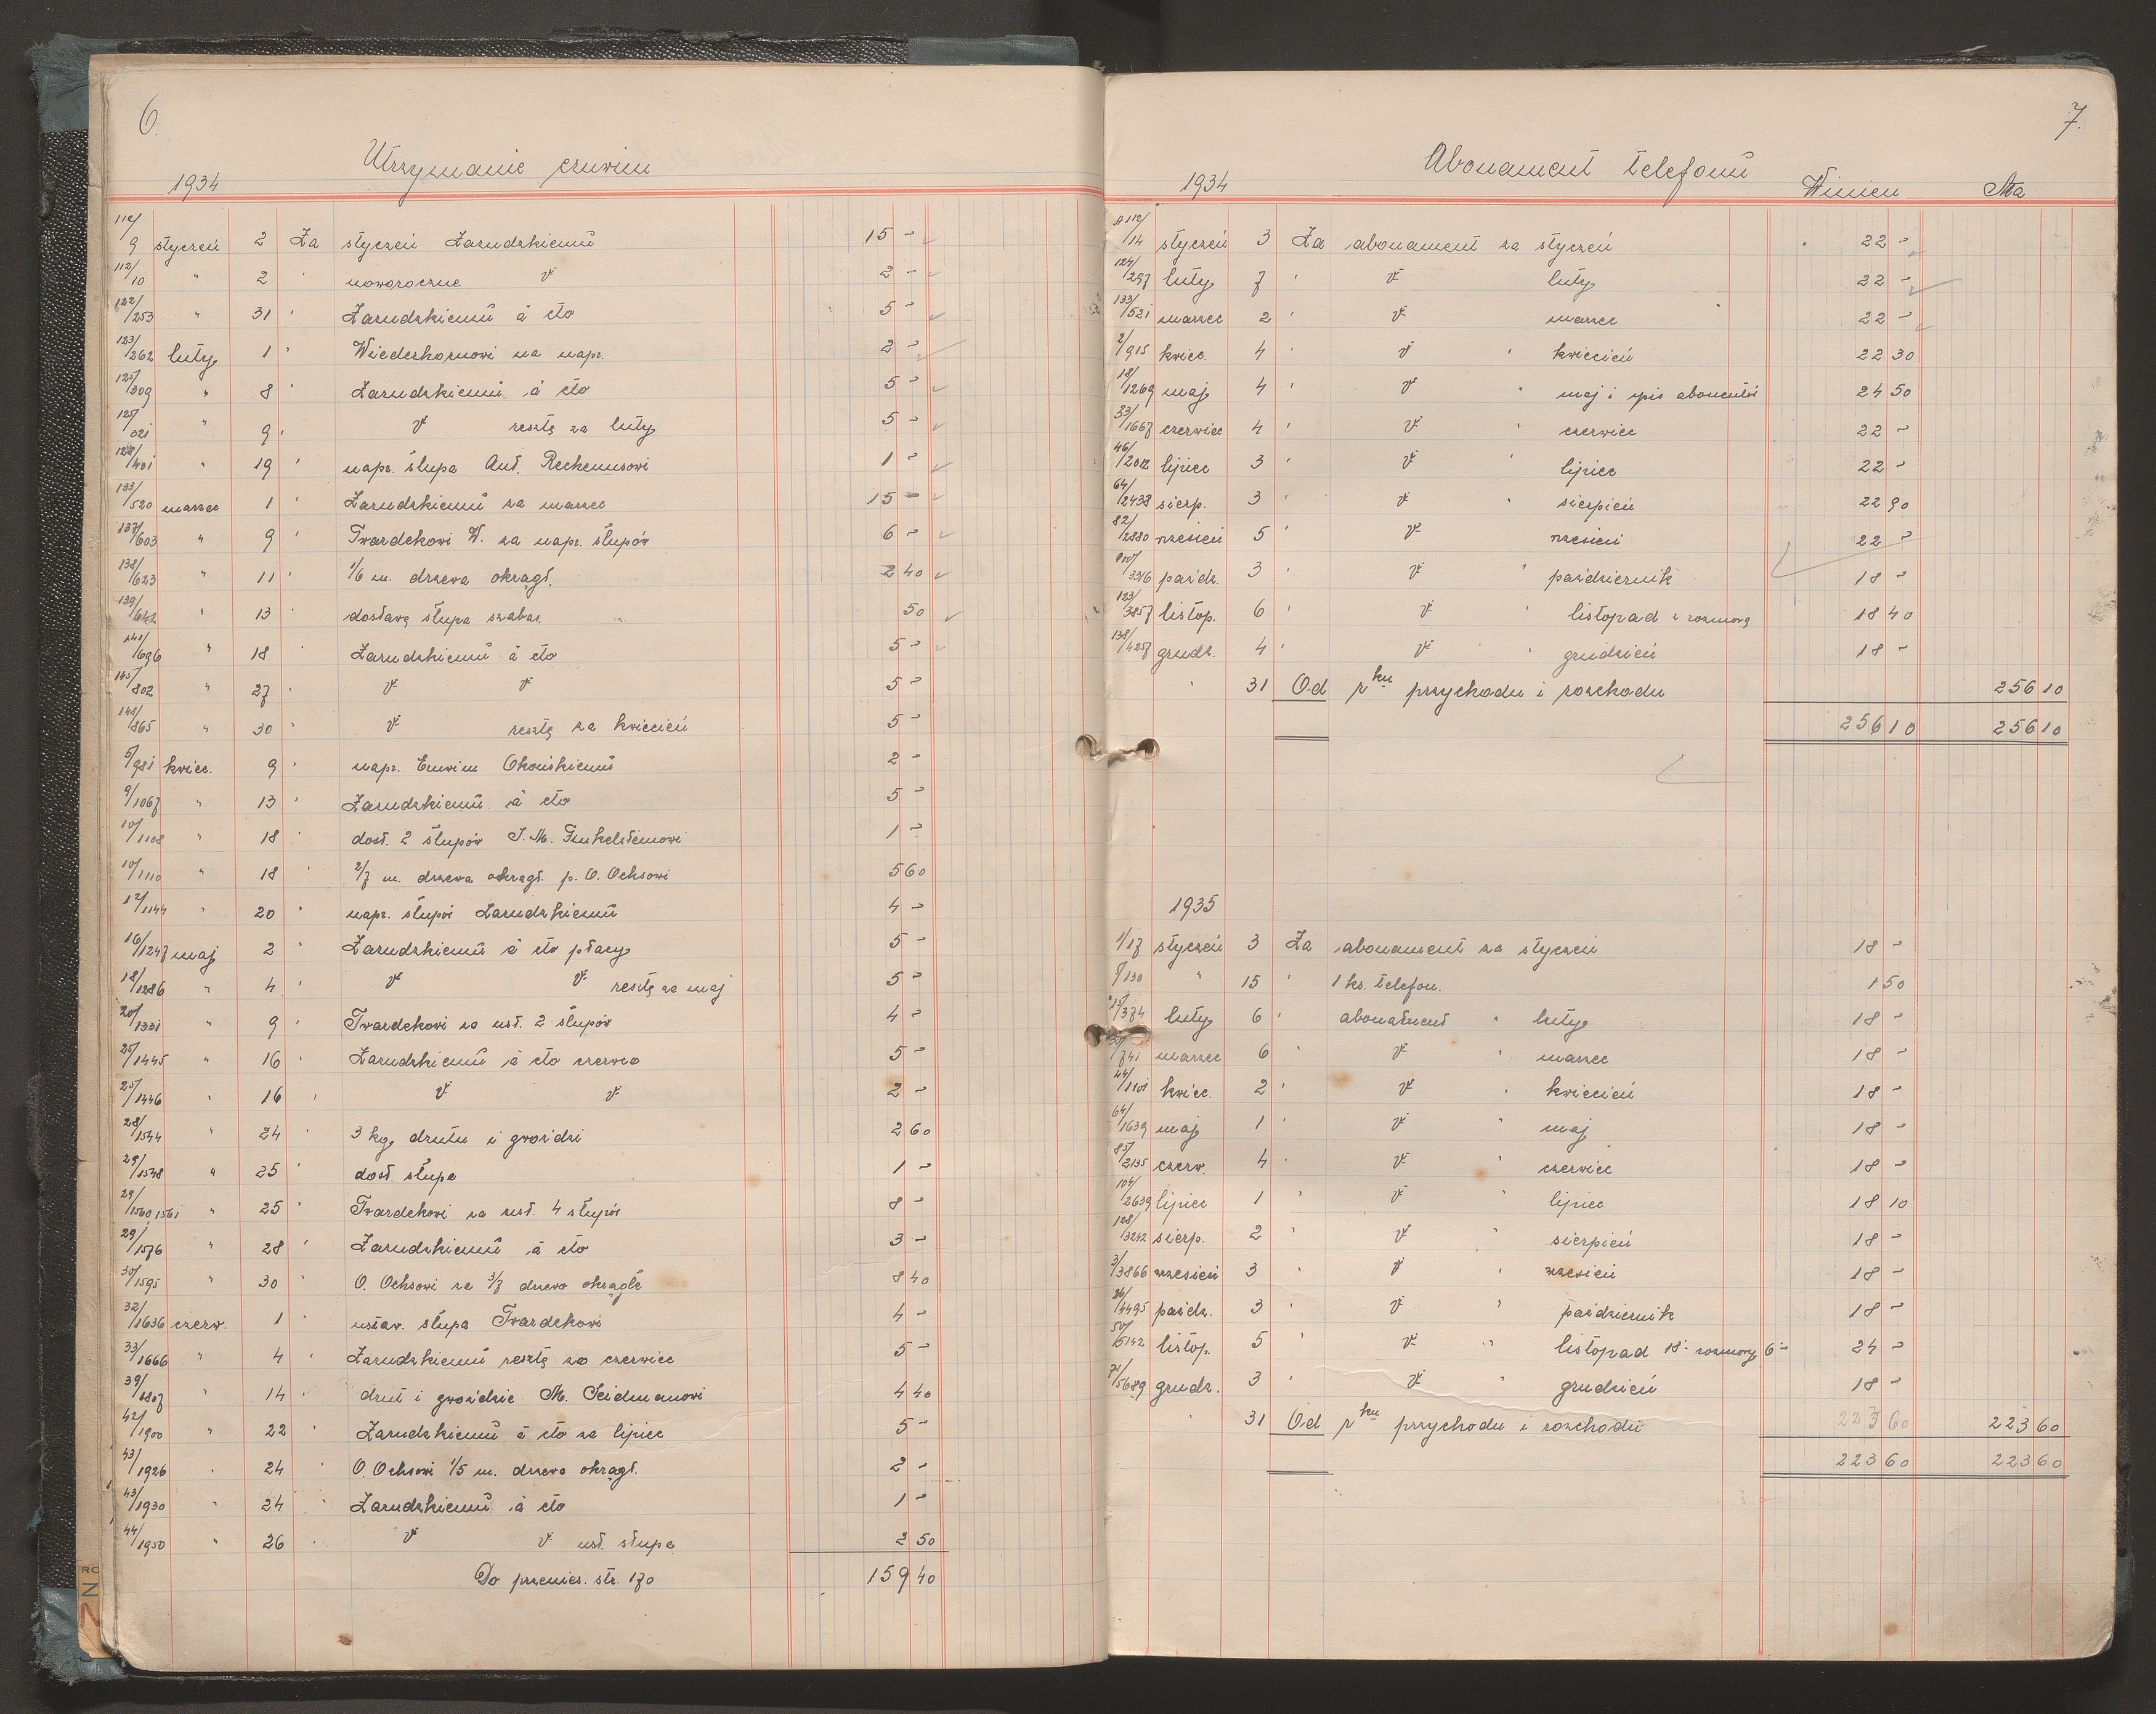 6.
Utrzymanie eruwim
1934
112/9 styczeń 2 Za styczeń Zarudzkiemu 15 -
112/10 " 2 ' noworoczne √ 2 -
122/253 " 31 ' Zarudzkiemu à cto 5 -
123/262 luty 1 ' Wiederkornowi na napr. 2 -
125/309 " 8 ' Zarudzkiemu à cto 5 -
125/ " 9 ' √ resztę za luty 5 -
128/401 " 19 ' napr. słupa Ant. 1 -
133/520 marzec 1 ' Zarudzkiemu za marzec 15 -
137/603 " 9 ' Twardekowi W. za napr. słupów 6 -
138/623 " 11 ' 1/6 m. drzewa okrągł. 2 40
139/642 " 13 ' dostawę słupa szabas. 50
141/696 " 18 ' Zarudzkiemu à cto 5 -
145/802 " 27 ' √ √ 5 -
148/865 " 30 ' √ resztę za kwiecień 5 -
5/981 kwiec. 9 ' napr. Eruwim Okońskiemu 2 -
9/1067 " 13 ' Zarudzkiemu à cto 5 -
10/1108 " 18 ' dost. 2 słupów J. M. Finkelsteinowi 1 -
10/1110 " 18 ' 2/7 m. drzewa okrągł. p. O. Ochsowi 5 60
12/1144 " 20 ' napr. słupów Zarudzkiemu 4 -
16/1247 maj 2 ' Zarudzkiemu à cto płacy 5 -
18/1286 " 4 ' √ √ resztę za maj 5 -
20/1331 " 9 ' Twardekowi za ust. 2 słupów 4 -
25/1445 " 16 ' Zarudzkiemu à cto czerwca 5 -
25/1446 " 16 ' √ √ 2 -
28/1544 " 24 ' 3 kg. drutu i gwoździ 2 60
29/1548 " 25 ' dost. słupa 1 -
29/1560 1561 " 25 ' Twardekowi za ust. 4 słupów 8 -
29/1576 " 28 ' Zarudzkiemu à cto 3 -
30/1595 " 30 ' O. Ochsowi za 3/7 drzewo okrągłe 8 40
32/1636 czerw. 1 ' ustaw. słupa Twardekowi 4 -
33/1666 " 4 ' Zarudzkiemu resztę za czerwiec 5 -
39/1807 " 14 ' drut i gwoździe M. Seidmanowi 4 40
42/1900 " 22 ' Zarudzkiemu à cto za lipiec 5 -
43/1926 " 24 ' O. Ochsowi 1/5 m. drzewa okrągł. 2 -
43/1930 " 24 ' Zarudzkiemu à cto 1 -
44/1950 " 26 ' √ √ ust. słupa 2 50
Do przenies. str. 170 159 40
7.
Abonament telefonu
1934 Winien Ma
112/14 styczeń 3 Za abonament za styczeń 22 -
124/297 luty 7 ' √ luty 22 -
133/521 marzec 2 ' √ marzec 22 -
2/915 kwiec. 4 ' √ ' kwiecień 22 30
18/1269 maj 4 ' √ ' maj i spis abonentów 24 50
33/1667 czerwiec 4 ' √ ' czerwiec 22 -
46/2012 lipiec 3 ' √ ' lipiec 22 -
64/2438 sierp. 3 ' √ ' sierpień 22 90
82/2880 wrzesień 5 ' √ wrzesień 22 -
100/3316 paźdz. 3 ' √ ' październik 18 -
123/3857 listop. 6 ' √ ' listopad z rozmową 18 40
138/4257 grudz. 4 ' √ ' grudzień 18 -
" 31 Od r ku przychodu i rozchodu 256 10
256 10 256 10
1935
1/17 styczeń 3 Za abonament za styczeń 18 -
5/130 " 15 ' 1 ks. telefon. 1 50
15/374 luty 6 ' abonament " luty 18 -
30/741 marzec 6 ' √ " marzec 18 -
44/1101 kwiec. 2 ' √ ' kwiecień 18 -
64/1639 maj 1 ' √ ' maj 18 -
85/2135 czerw. 4 ' √ ' czerwiec 18 -
104/2639 lipiec 1 ' √ ' lipiec 18 10
128/3242 sierp. 2 ' √ ' sierpień 18 -
3/3866 wrzesień 3 ' √ ' wrzesień 18 -
26/4495 paźdz. 3 ' √ ' październik 18 -
50/5142 listop. 5 ' √ " listopad 18 - rozmowy 6 - 24 -
71/5689 grudz. 3 ' √ " grudzień 18 -
" 31 Od r ku przychodu i rozchodu 223 60 223 60
223 60 223 60